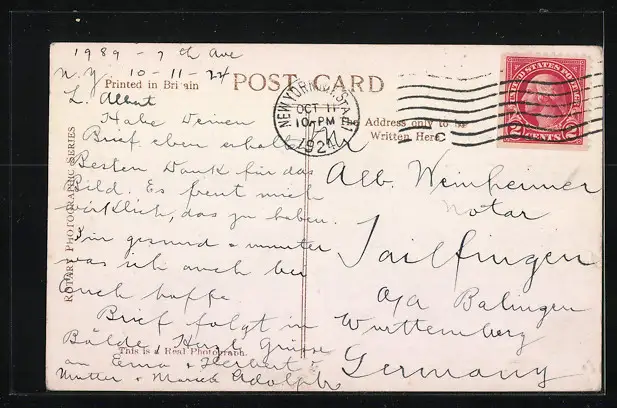 1989 - 7th Ave
N.Y. 10-11-24
Printed in Britain
POST CARD
The Address only to be
Written Here
ROTARY PHOTOGRAPHIC SERIES
This is a Real Photograph.
NEW YORK, N.Y. STA.
OCT 11
10-PM
1924
UNITED STATES POSTAGE
2 CENTS 2
L. Albert
Habe Deinen
Brief eben erhalten
Besten Dank für das
Bild. Es freut mich
wirklich, das zu haben.
Bin gesund + munter
was ich auch bei
Euch hoffe.
Brief folgt in
Bälde. Herzl. Grüsse
an Erna + Herbert +
Mutter + Adolph
Alb. Weinheimer
Notar
Tailfingen
O/A Balingen
Württemberg
Germany